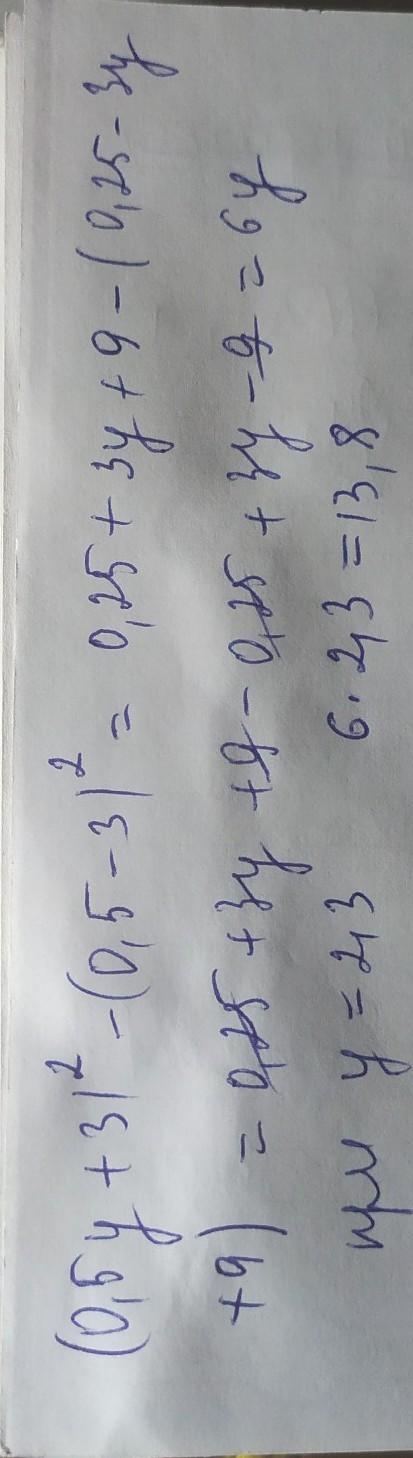 (0,5y + 3)² - (0,5 - 3)² = 0,25 + 3y + 9 - (0,25 - 3y
+9) = 0,25 + 3y + 9 - 0,25 + 3y - 9 = 6y
при y = 2,3 6 · 2,3 = 13,8